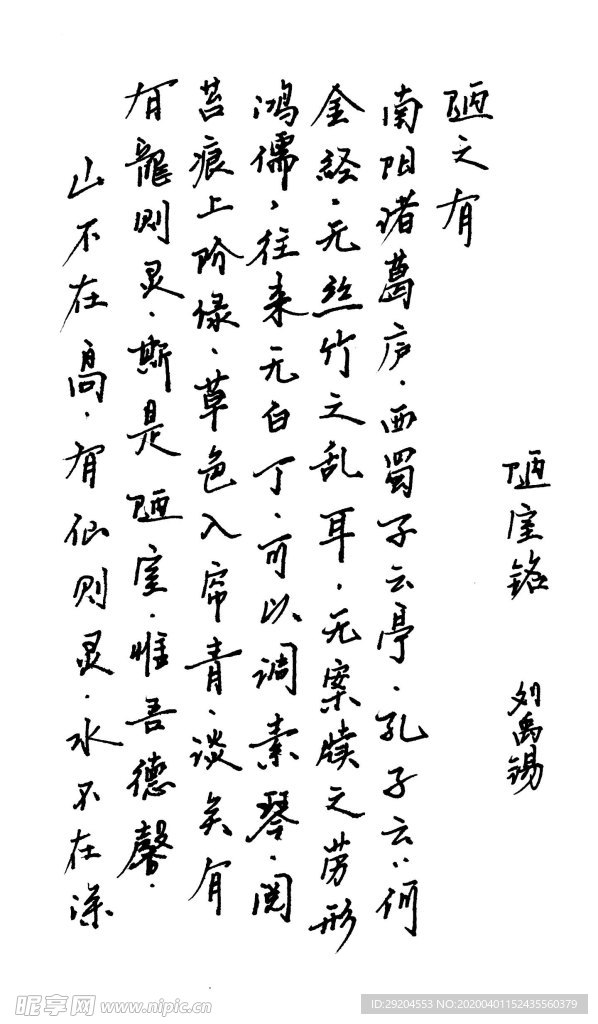 山不在高.有仙则灵.水不在深
有龍则灵.斯是陋室.惟吾德馨.
苔痕上阶绿.草色入帘青.谈笑有
鸿儒,往来无白丁.可以调素琴.阅
金経.无丝竹之乱耳.无案牍之劳形
南阳诸葛庐.西蜀子云亭.孔子云:何
陋之有
陋室铭 刘禹锡
昵享网 www.nipic.cn
ID:29204553 NO:20200401152435560379